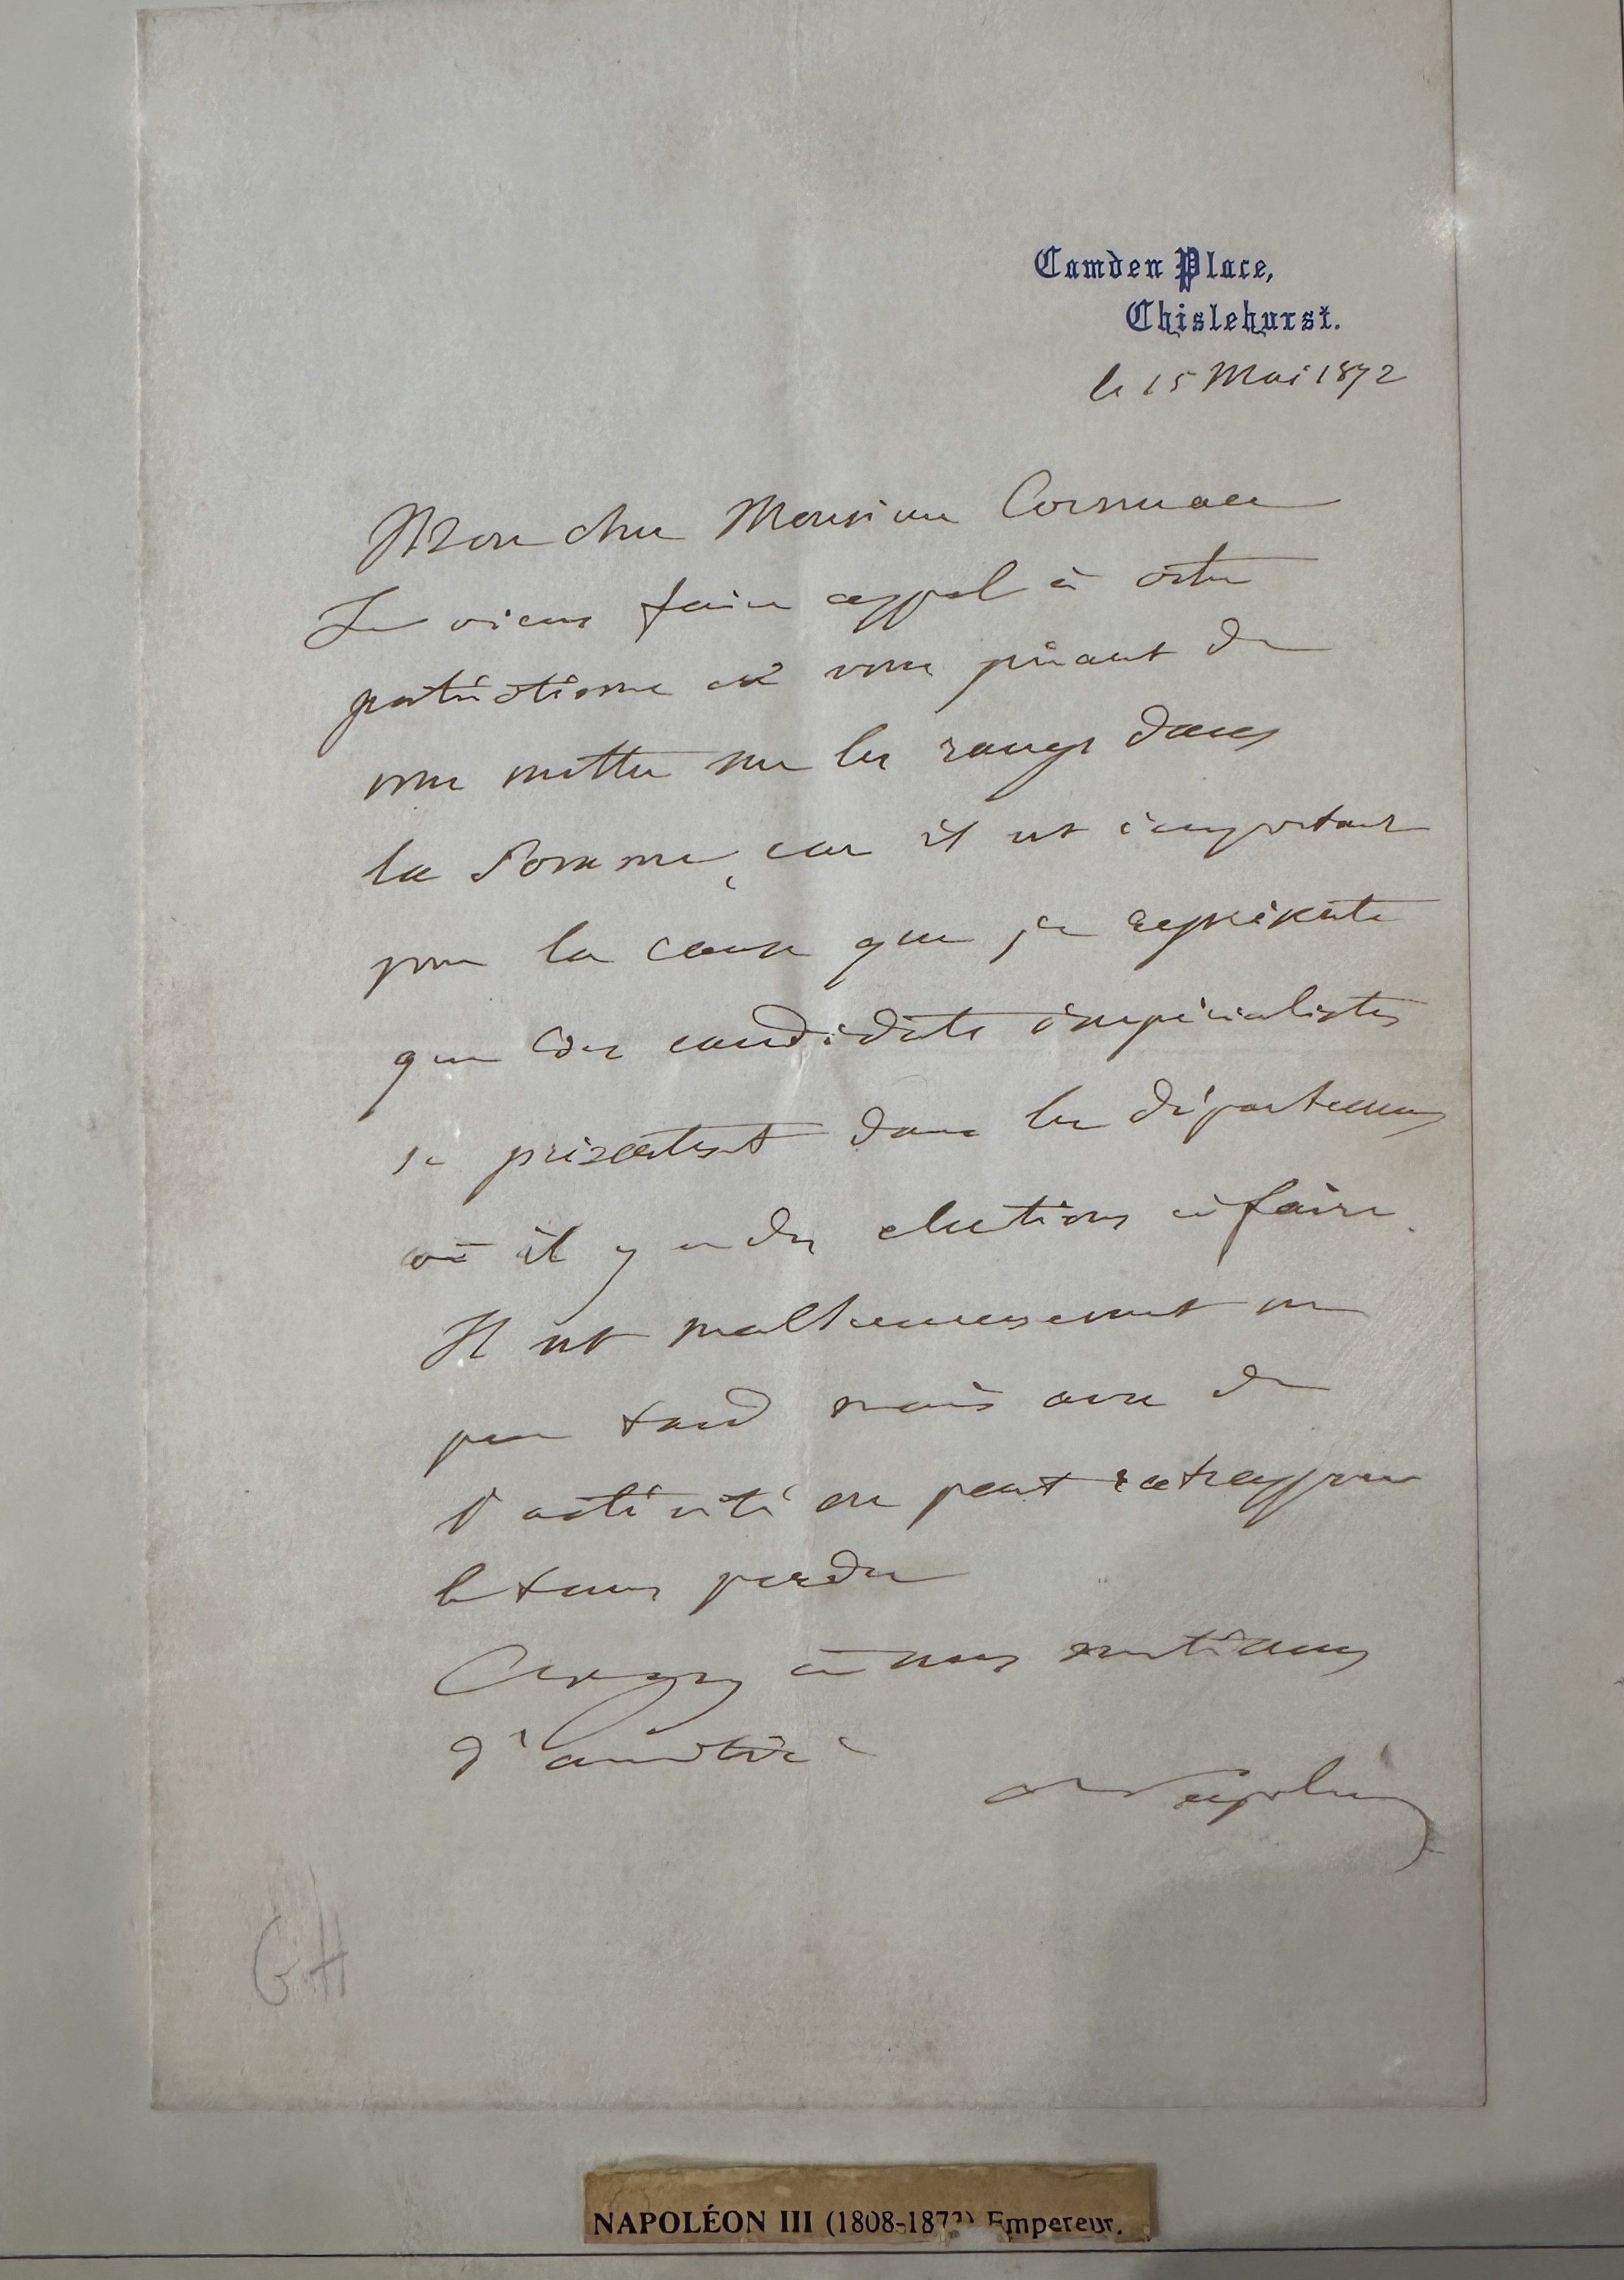 Camden Place,
Chislehurst.
le 15 Mai 1872
Mon cher Monsieur Cornuau
Je viens faire appel à votre
patriotisme en vous priant de
vous mettre sur les rangs dans
la Somme, car il est important
pour la cause que je représente
que des candidats impérialistes
se présentent dans les départemens
où il y a des elections à faire.
Il est malheureusement un
peu tard mais avec de
l'activité on peut rattrapper
le tems perdu
Croyez à mes sentiments
d'amitié
Napoléon
G.H
NAPOLÉON III (1808-1873) Empereur.